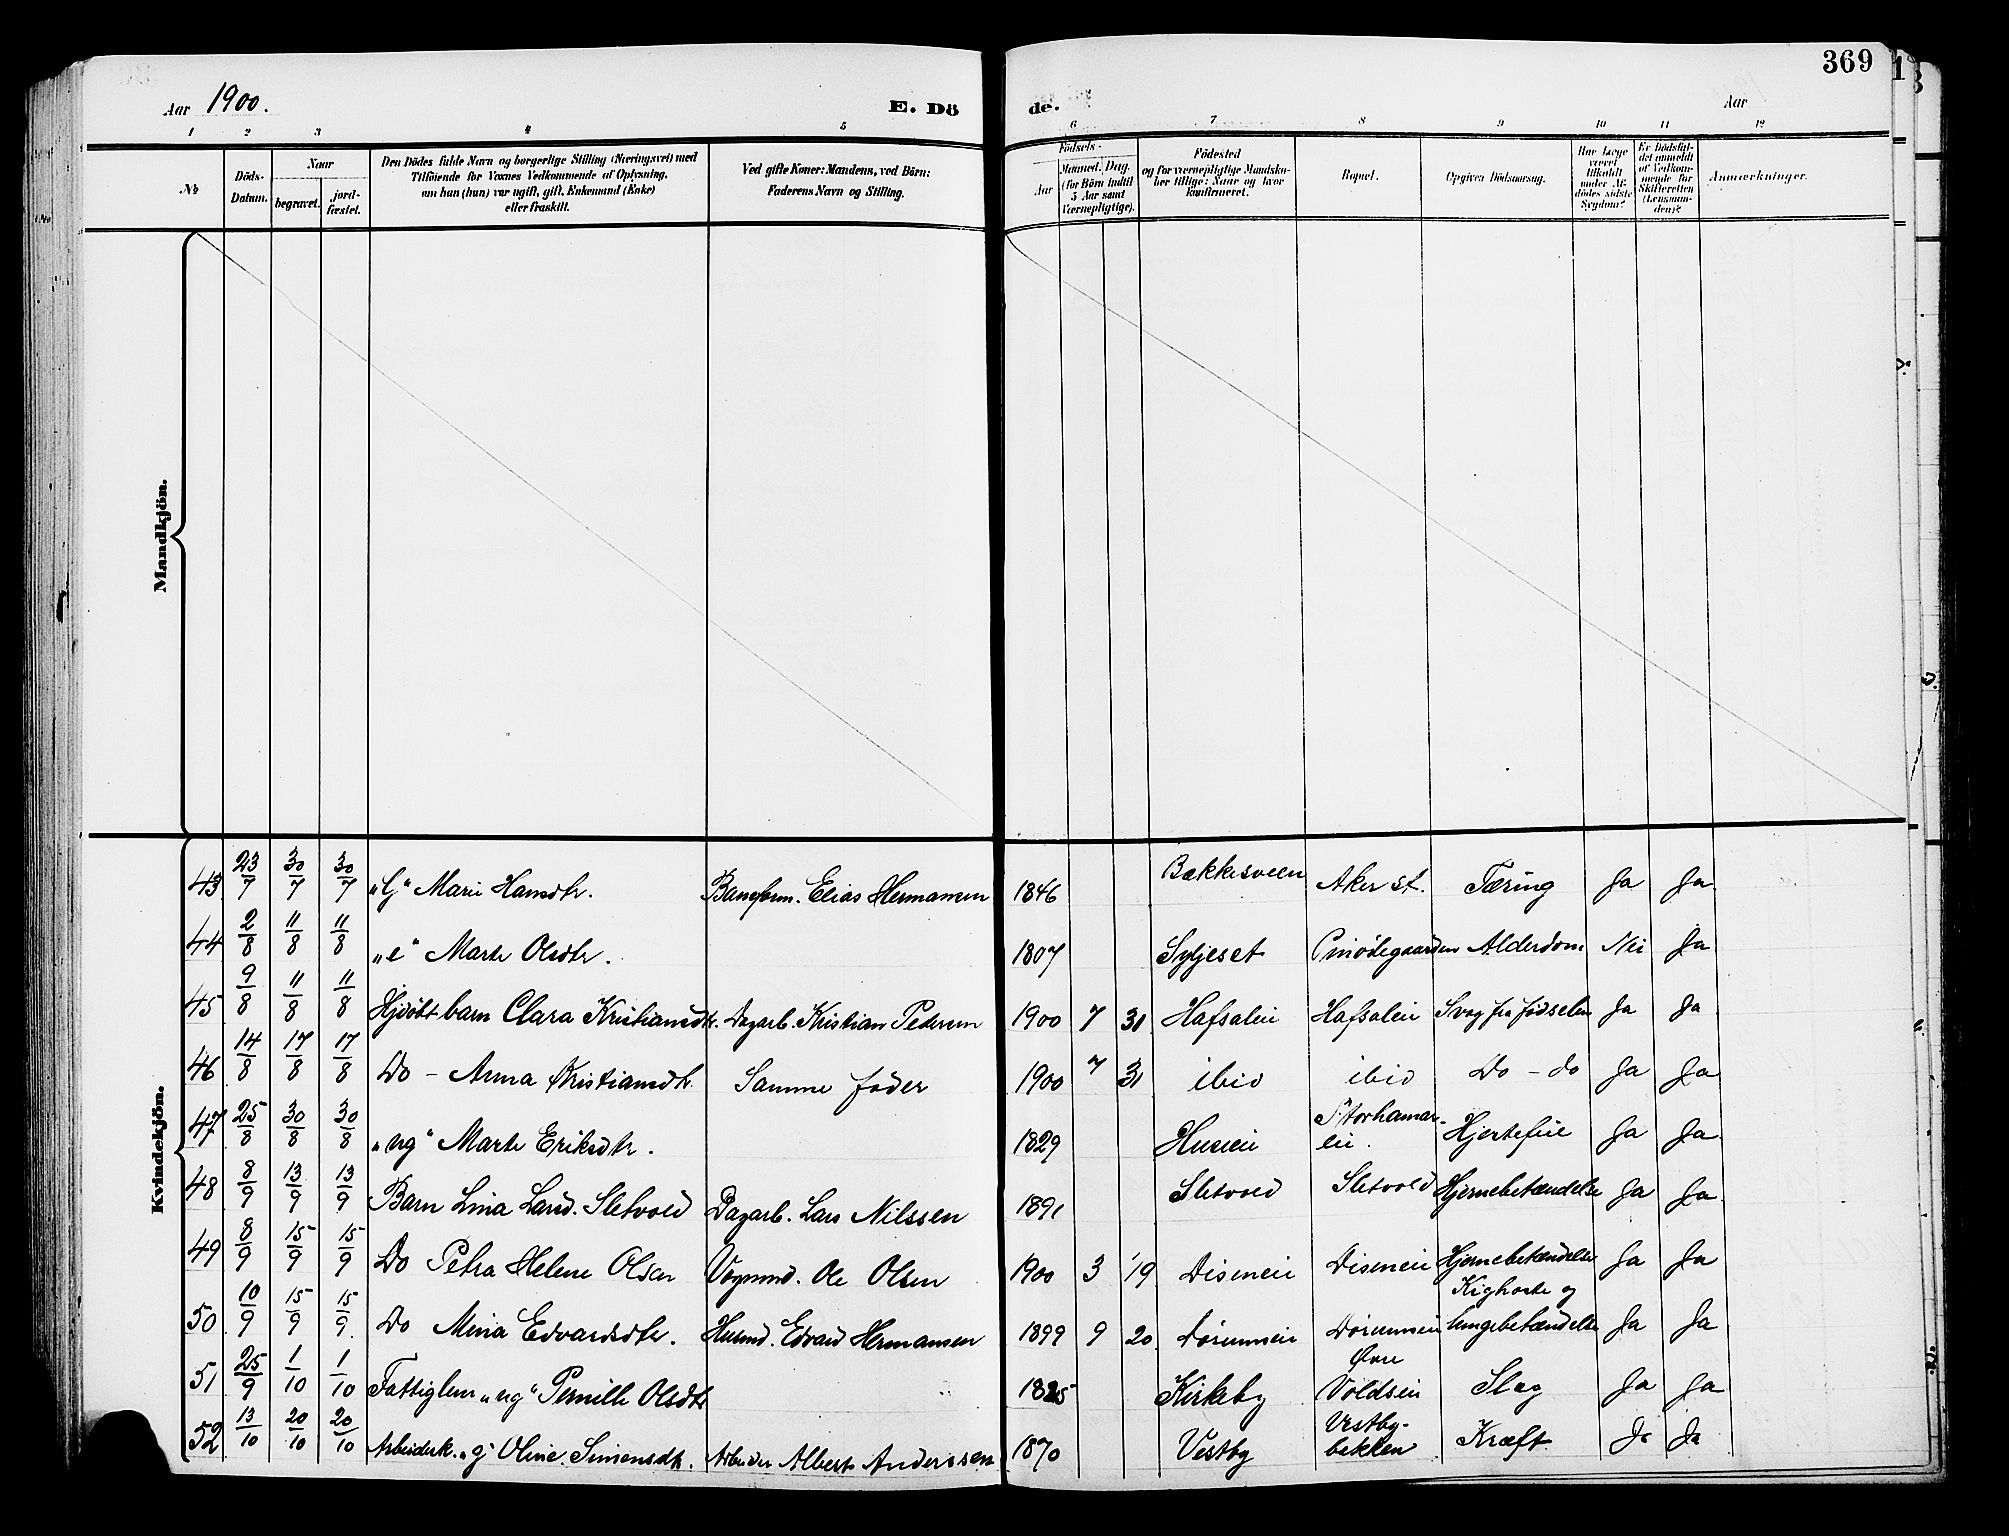 369
Aar 1900.
E. Dö
de.
Aar
1 2 3 4 5 6 7 8 9 10 11 12
№
Döds-Datum.
Naar
begravet.
jord-fæstet.
Den Dödes fulde Navn og borgerlige Stilling (Næringsvei) med
Tilföiende for Voxnes Vedkommende af Oplysning,
om han (hun) var ugift, gift, Enkemand (Enke)
eller fraskilt.
Ved gifte Koner: Mandens, ved Börn:
Faderens Navn og Stilling.
Födsels-
Aar
Maaned. Dag.
(for Börn indtil
5 Aar samt
Værnepligtige).
Födested
og for værnepligtige Mandskaber tillige: Naar og hvor
konfirmeret.
Bopæl.
Opgiven Dödsaarsag.
Har Læge
været
tilkaldt
under Afdödes sidste
Sygdom?
Er Dödsfaldet anmeldt
af Vedkommende for
Skifteretten
(Lensmanden)?
Anmærkninger.
Mandkjön.
Kvindekjön.
43 23/7 30/7 30/7 „G“ Marie Hansdtr. Baneform. Elias Hermansen 1846 Bækkesveen Aker st. Tæring Ja Ja
44 2/8 11/8 11/8 „e“ Marte Olsdtr. 1807 Syljeset Alderdom Nei Ja
45 9/8 11/8 11/8 Hjdöbt barn Clara Kristiansdtr. Dagarb. Kristian Pedersen 1900 7 31 Hafsaleie Hafsaleie Svag fra födselen Ja Ja
46 14/8 17/8 17/8 Do – Anna Kristiansdtr. Samme fader 1900 7 31 ibid ibid Do – do Ja Ja
47 25/8 30/8 30/8 „ug“ Marte Eriksdtr. 1829 Huseie Storhamar-eie. Hjertefeil Ja Ja
48 8/9 13/9 13/9 Barn Lina Larsd. Sletvold Dagarb. Lars Nilssen 1891 Sletvold Sletvold Hjernebetændelse Ja Ja
49 8/9 15/9 15/9 Do Petra Helene Olsen Vognmd. Ole Olsen 1900 3 19 Diseneie Diseneie Hjernebetændelse Ja Ja
50 10/9 15/9 15/9 Do Mina Edvardsdtr. Husmd. Edvard Hermansen 1899 9 20 Dörumeie Dörumeie Kighoste og lungebetændelse Ja Ja
51 25/9 1/10 1/10 Fattiglem „ug“ Pernille Olsdtr 1825 Kirkeby Övre Voldseie Slag Ja Ja
52 13/10 20/10 20/10 Arbeiderk. „g“ Oline Simensdtr. Arbeider Albert Anderssen 1870 Vestby Vestby-bakken Kræft Ja Ja